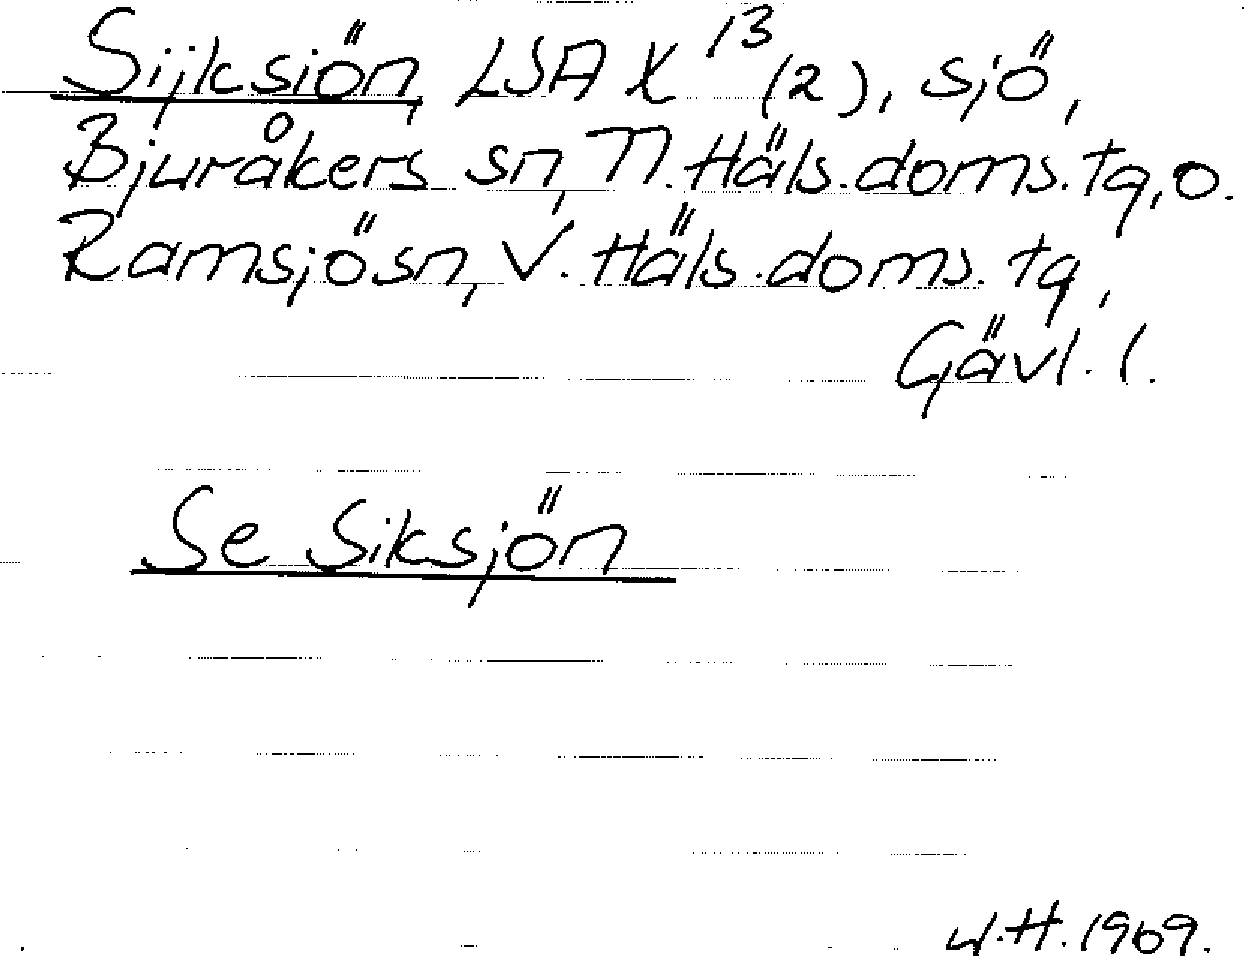 Sijksiön, LSA X 13 (2), sjö,
Bjuråkers sn, N. Häls. doms. tg, o.
Ramsjö sn, V. Häls. doms. tg,
Gävl. l.
Se Siksjön
H. 1969.